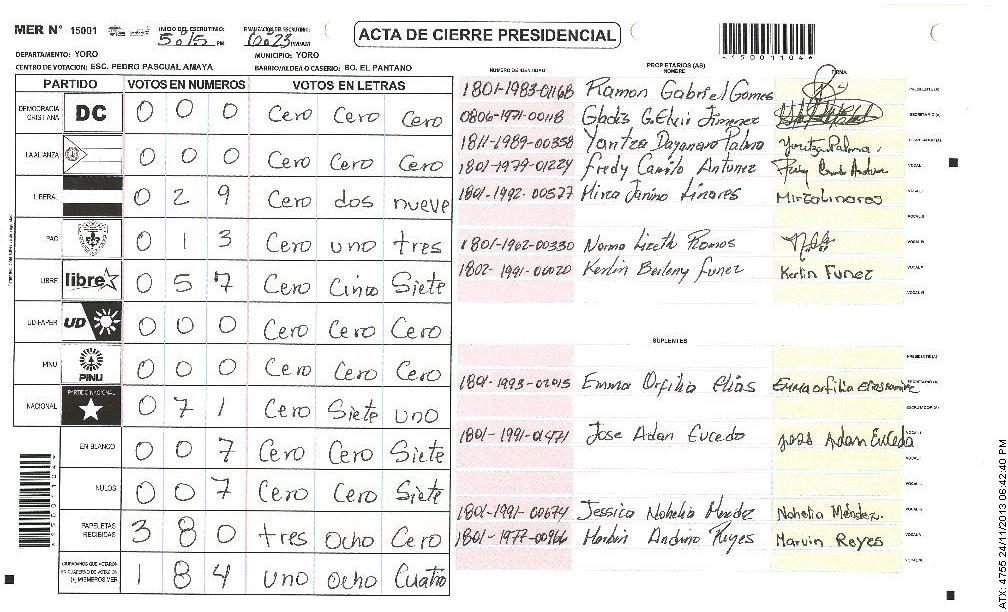 MER N° 15001
INICIO DEL ESCRUTINIO: 5:015 PM
FINALIZACION DEL ESCRUTINIO: PM/AM
ACTA DE CIERRE PRESIDENCIAL
DEPARTAMENTO: YORO
MUNICIPIO: YORO
CENTRO DE VOTACION: ESC. PEDRO PASCUAL AMAYA
BARRIO/ALDEA O CASERIO: BO. EL PANTANO
PARTIDO VOTOS EN NUMEROS VOTOS EN LETRAS
DEMOCRACIA CRISTIANA DC 0 0 0 Cero Cero Cero
LA ALIANZA 0 0 0 Cero Cero Cero
LIBERAL 0 2 9 Cero dos nueve
PAC 0 1 3 Cero uno tres
LIBRE libre 0 5 7 Cero Cinco Siete
UD-FAPER UD 0 0 0 Cero Cero Cero
PINU PINU 0 0 0 Cero Cero Cero
NACIONAL PARTIDO NACIONAL 0 7 1 Cero Siete uno
EN BLANCO 0 0 7 Cero Cero Siete
NULOS 0 0 7 Cero Cero Siete
PAPELETAS RECIBIDAS 3 8 0 tres Ocho Cero
CIUDADANOS QUE VOTARON EN CUADERNO DE VOTACION (+) MIEMBROS MER 1 8 4 uno Ocho Cuatro
NUMERO DE IDENTIDAD PROPIETARIOS (AS) NOMBRE FIRMA
1801-1983-01168 Ramon Gabriel Gomes PRESIDENTE (A)
0806-1971-00118 Gladis G. Elvir Jimenez SECRETARIO (A)
1811-1989-00358 Dayanara Palma Palma
1801-1979-01224 Fredy Camilo Antunez VOCAL I
1801-1992-00577 Mirza Linares Mirza Linares VOCAL II
VOCAL III
1801-1962-00330 Norma Lizeth Ramos VOCAL IV
1802-1991-00020 Kerlin Berleny Funez Kerlin Funez VOCAL V
VOCAL VI
SUPLENTES
PRESIDENTE (A)
1801-1993-02015 Emma Orfilia Elias Emma orfilia SECRETARIO (A)
ESCRUTADOR (A)
1801-1991-01471 Jose Adan Euceda Jose Adan Euceda VOCAL I
VOCAL II
VOCAL III
1801-1991-00674 Jessica Nohelia Mendez Nohelia Méndez. VOCAL IV
1801-1977-00966 Marvin Andino Reyes Marvin Reyes VOCAL V
VOCAL VI
*15001104*
*15001104*
ATX: 4755 24/11/2013 06:42:40 PM